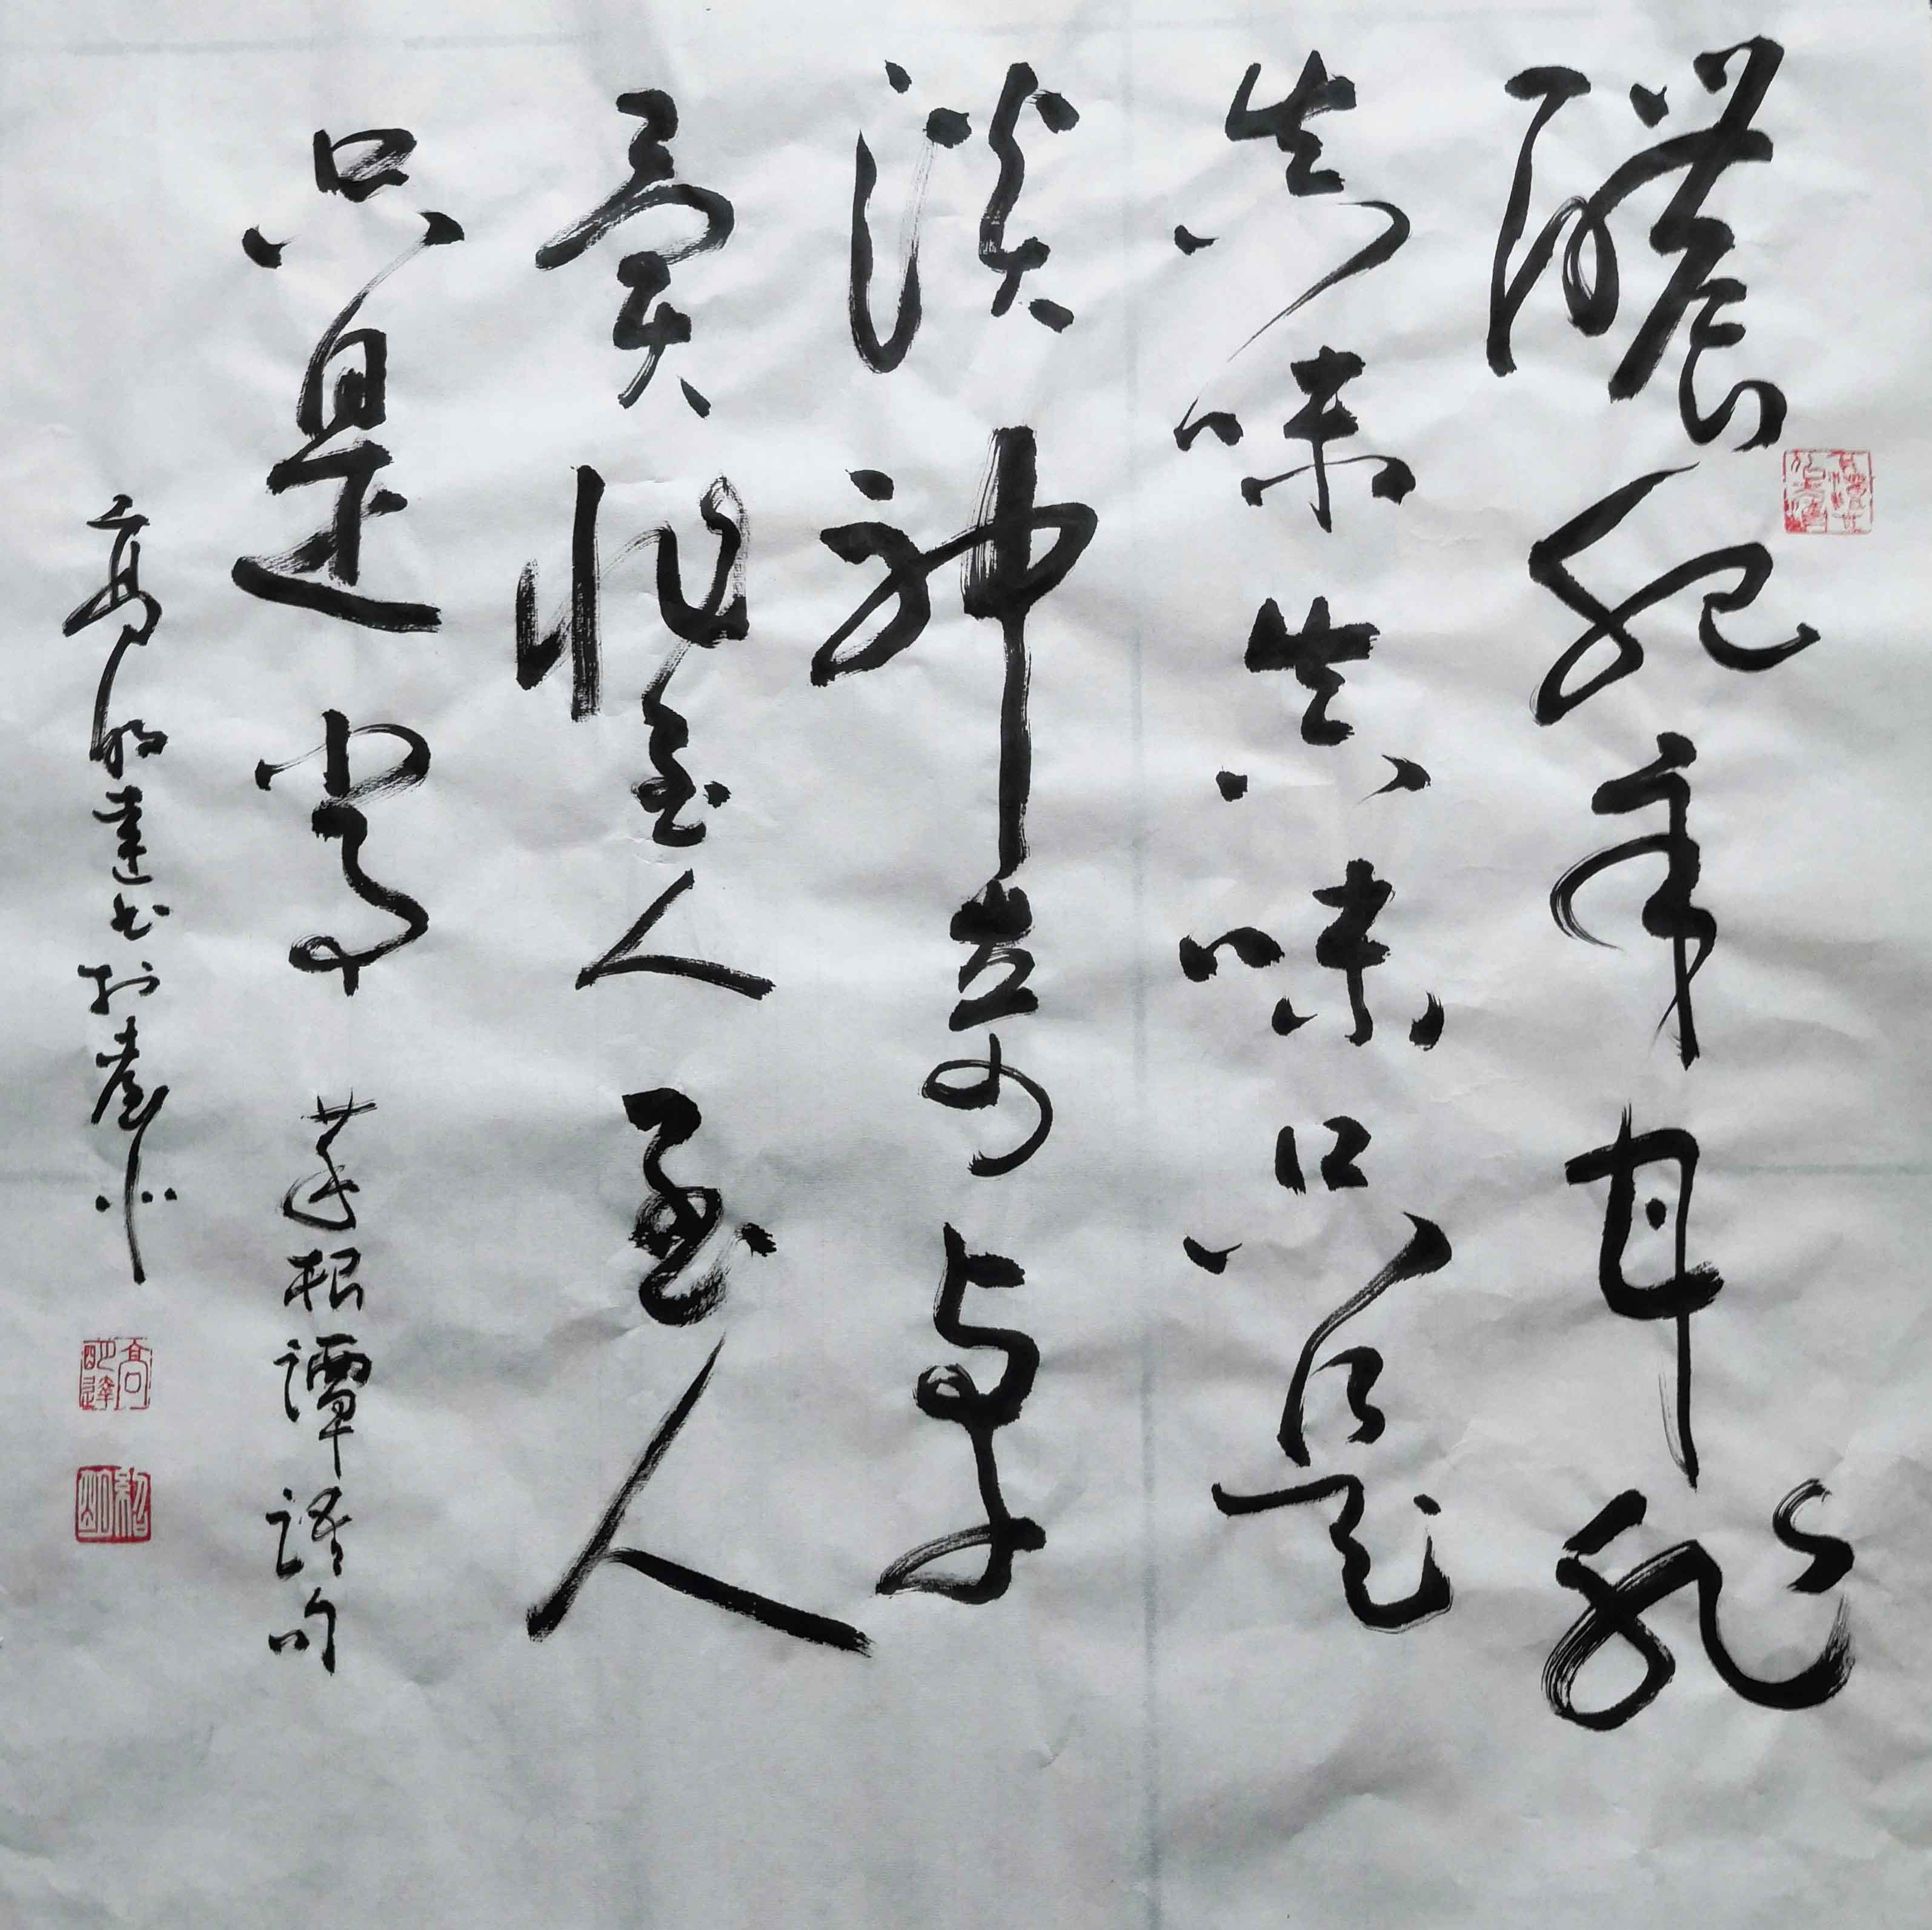 醲肥辛甘非
真味真味只是
淡神奇卓
異非至人至人
只是常 菜根譚語句
高 達書於